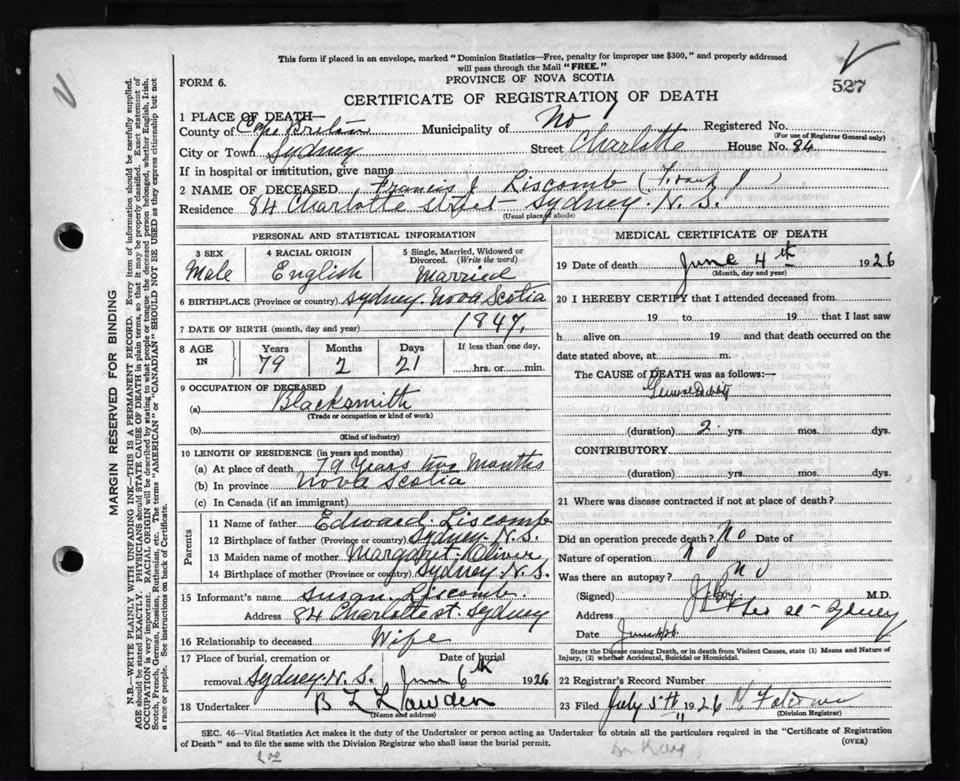 This form if placed in an envelope, marked "Dominion Statistics—Free, penalty for improper use $300," and properly addressed
will pass through the Mail "FREE."
527
PROVINCE OF NOVA SCOTIA
FORM 6.
CERTIFICATE OF REGISTRATION OF DEATH
1 PLACE OF DEATH—
County of Cape Breton Municipality of No 1 Registered No.
(For use of Registrar General only)
City or Town Sydney Street Charlotte House No. 84
If in hospital or institution, give name
2 NAME OF DECEASED Francis J Liscomb (Frank J)
Residence 84 Charlotte Street - Sydney. N. S.
(Usual place of abode)
PERSONAL AND STATISTICAL INFORMATION
3 SEX 4 RACIAL ORIGIN 5 Single, Married, Widowed or
Divorced. (Write the word)
Male English Married
6 BIRTHPLACE (Province or country) Sydney. Nova Scotia
7 DATE OF BIRTH (month, day and year) 1847.
8 AGE IN Years Months Days If less than one day,
79 2 21 hrs. or min.
9 OCCUPATION OF DECEASED
(a) Blacksmith
(Trade or occupation or kind of work)
(b)
(Kind of industry)
10 LENGTH OF RESIDENCE (in years and months)
(a) At place of death 79 Years two Months
(b) In province Nova Scotia
(c) In Canada (if an immigrant)
Parents
11 Name of father Edward Liscomb
12 Birthplace of father (Province or country) Sydney N. S.
13 Maiden name of mother Margaret Oliver
14 Birthplace of mother (Province or country) Sydney N. S.
15 Informant's name Susan Liscomb.
Address 84 Charlotte st. Sydney
16 Relationship to deceased Wife
17 Place of burial, cremation or Date of burial
removal Sydney N. S. June 6th 1926
18 Undertaker B L
(Name and address)
MEDICAL CERTIFICATE OF DEATH
19 Date of death June 4th 1926
(Month, day and year)
20 I HEREBY CERTIFY that I attended deceased from
19 to 19 that I last saw
h alive on 19 and that death occurred on the
date stated above, at m.
The CAUSE of DEATH was as follows:—
General Debility
(duration) 2 yrs. mos. dys.
CONTRIBUTORY
(duration) yrs. mos. dys.
21 Where was disease contracted if not at place of death?
Did an operation precede death? No Date of
Nature of operation
Was there an autopsy? No
(Signed) M.D.
Address Sydney
Date June
State the Disease causing Death, or in death from Violent Causes, state (1) Means and Nature of
Injury, (2) whether Accidental, Suicidal or Homicidal.
22 Registrar's Record Number
23 Filed July 5th 1926
(Division Registrar)
SEC. 46—Vital Statistics Act makes it the duty of the Undertaker or person acting as Undertaker to obtain all the particulars required in the "Certificate of Registration
of Death" and to file the same with the Division Registrar who shall issue the burial permit. (OVER)
MARGIN RESERVED FOR BINDING
N.B.—WRITE PLAINLY WITH UNFADING INK—THIS IS A PERMANENT RECORD. Every item of information should be carefully supplied.
AGE should be stated EXACTLY. PHYSICIANS should STATE CAUSE OF DEATH in plain terms, so that it may be properly classified. Exact statement of
OCCUPATION is very important. RACIAL ORIGIN will be described by stating to what people or tongue the deceased person belonged, whether English, Irish,
Scotch, French, German, Russian, Ruthenian, etc. The terms "AMERICAN" or "CANADIAN" SHOULD NOT BE USED as they express citizenship but not
a race or people. See instructions on back of Certificate.